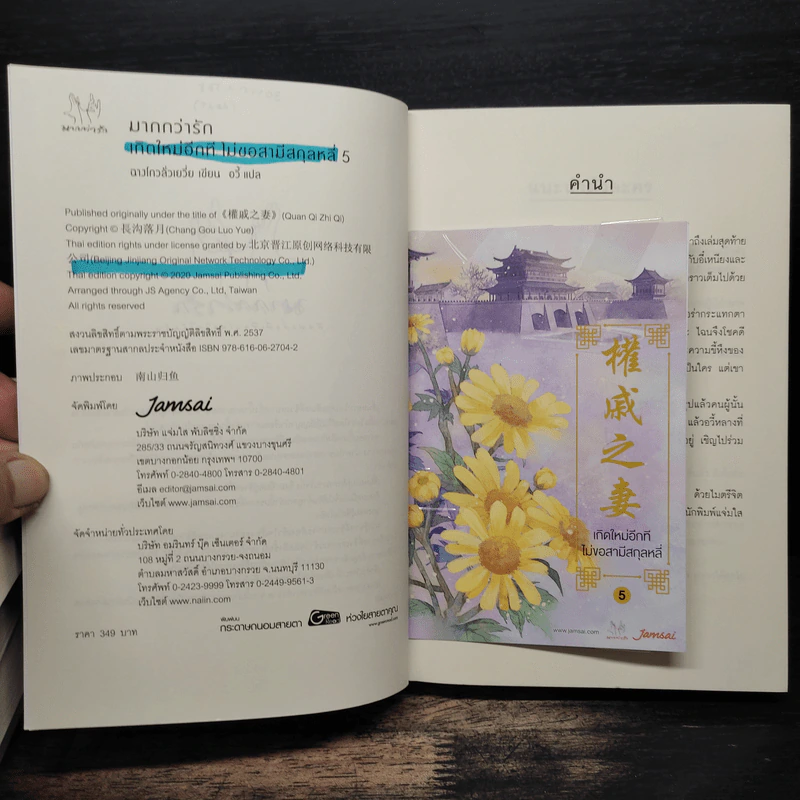 มากกว่ารัก
มากกว่ารัก
เกิดใหม่อีกที ไม่ขอสามีสกุลหลี่ 5
ฉางโกวลั่วเยวี่ย เขียน อวี้ แปล
Published originally under the title of《權戚之妻》(Quan Qi Zhi Qi)
Copyright © 長沟落月(Chang Gou Luo Yue)
Thai edition rights under license granted by 北京晋江原创网络科技有限
公司(Beijing Jinjiang Original Network Technology Co., Ltd.)
Thai edition copyright © 2020 Jamsai Publishing Co., Ltd.
Arranged through JS Agency Co., Ltd, Taiwan
All rights reserved
สงวนลิขสิทธิ์ตามพระราชบัญญัติลิขสิทธิ์ พ.ศ. 2537
เลขมาตรฐานสากลประจำหนังสือ ISBN 978-616-06-2704-2
ภาพประกอบ 南山归鱼
จัดพิมพ์โดย Jamsai
บริษัท แจ่มใส พับลิชชิ่ง จำกัด
285/33 ถนนจรัญสนิทวงศ์ แขวงบางขุนศรี
เขตบางกอกน้อย กรุงเทพฯ 10700
โทรศัพท์ 0-2840-4800 โทรสาร 0-2840-4801
อีเมล editor@jamsai.com
เว็บไซต์ www.jamsai.com
จัดจำหน่ายทั่วประเทศโดย
บริษัท อมรินทร์ บุ๊ค เซ็นเตอร์ จำกัด
108 หมู่ที่ 2 ถนนบางกรวย-จงถนอม
ตำบลมหาสวัสดิ์ อำเภอบางกรวย จ.นนทบุรี 11130
โทรศัพท์ 0-2423-9999 โทรสาร 0-2449-9561-3
เว็บไซต์ www.naiin.com
ราคา 349 บาท
พิมพ์บน
กระดาษถนอมสายตา Green Read ห่วงใยสายตาคุณ
คำนำ
าถึงเล่มสุดท้าย
กับอี้เหนียงและ
ราวเต็มไปด้วย
ร่ำกระแทกตา
ไฉนจึงโชคดี
ความขี้หึงของ
เป็นใคร แต่เขา
ปแล้วคนผู้นั้น
แล้วอวี้หลางที่
อยู่ เชิญไปร่วม
ด้วยไมตรีจิต
นักพิมพ์แจ่มใส
權戚之妻
เกิดใหม่อีกที
ไม่ขอสามีสกุลหลี่
5
www.jamsai.com
Jamsai